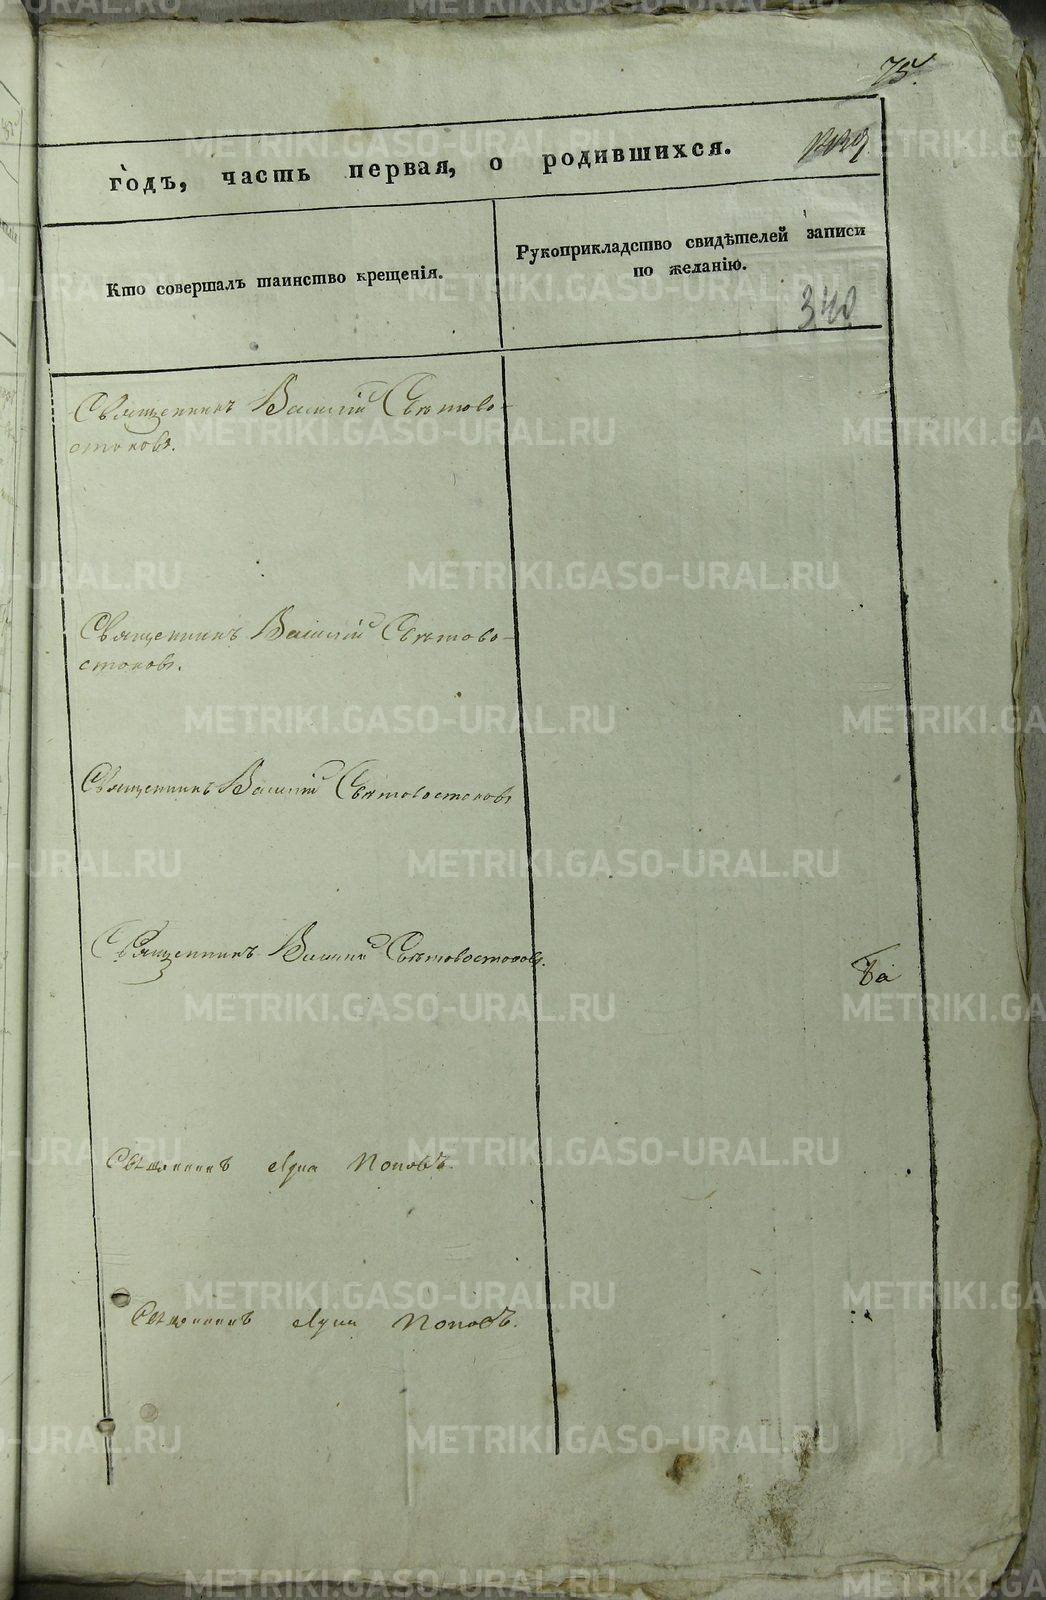 75.
годъ, часть первая, о родившихся.
Кто совершалъ таинство крещенія.
Рукоприкладство свидѣтелей записи
по желанію.
340
Священникъ Василій Свѣтово-
стоковъ.
Священникъ Василій Свѣтово-
стоковъ.
Священникъ Василій Свѣтовостоковъ
Священникъ Василій Свѣтовостоковъ.
Священникъ Поповъ.
Священникъ Поповъ.
METRIKI.GASO-URAL.RU